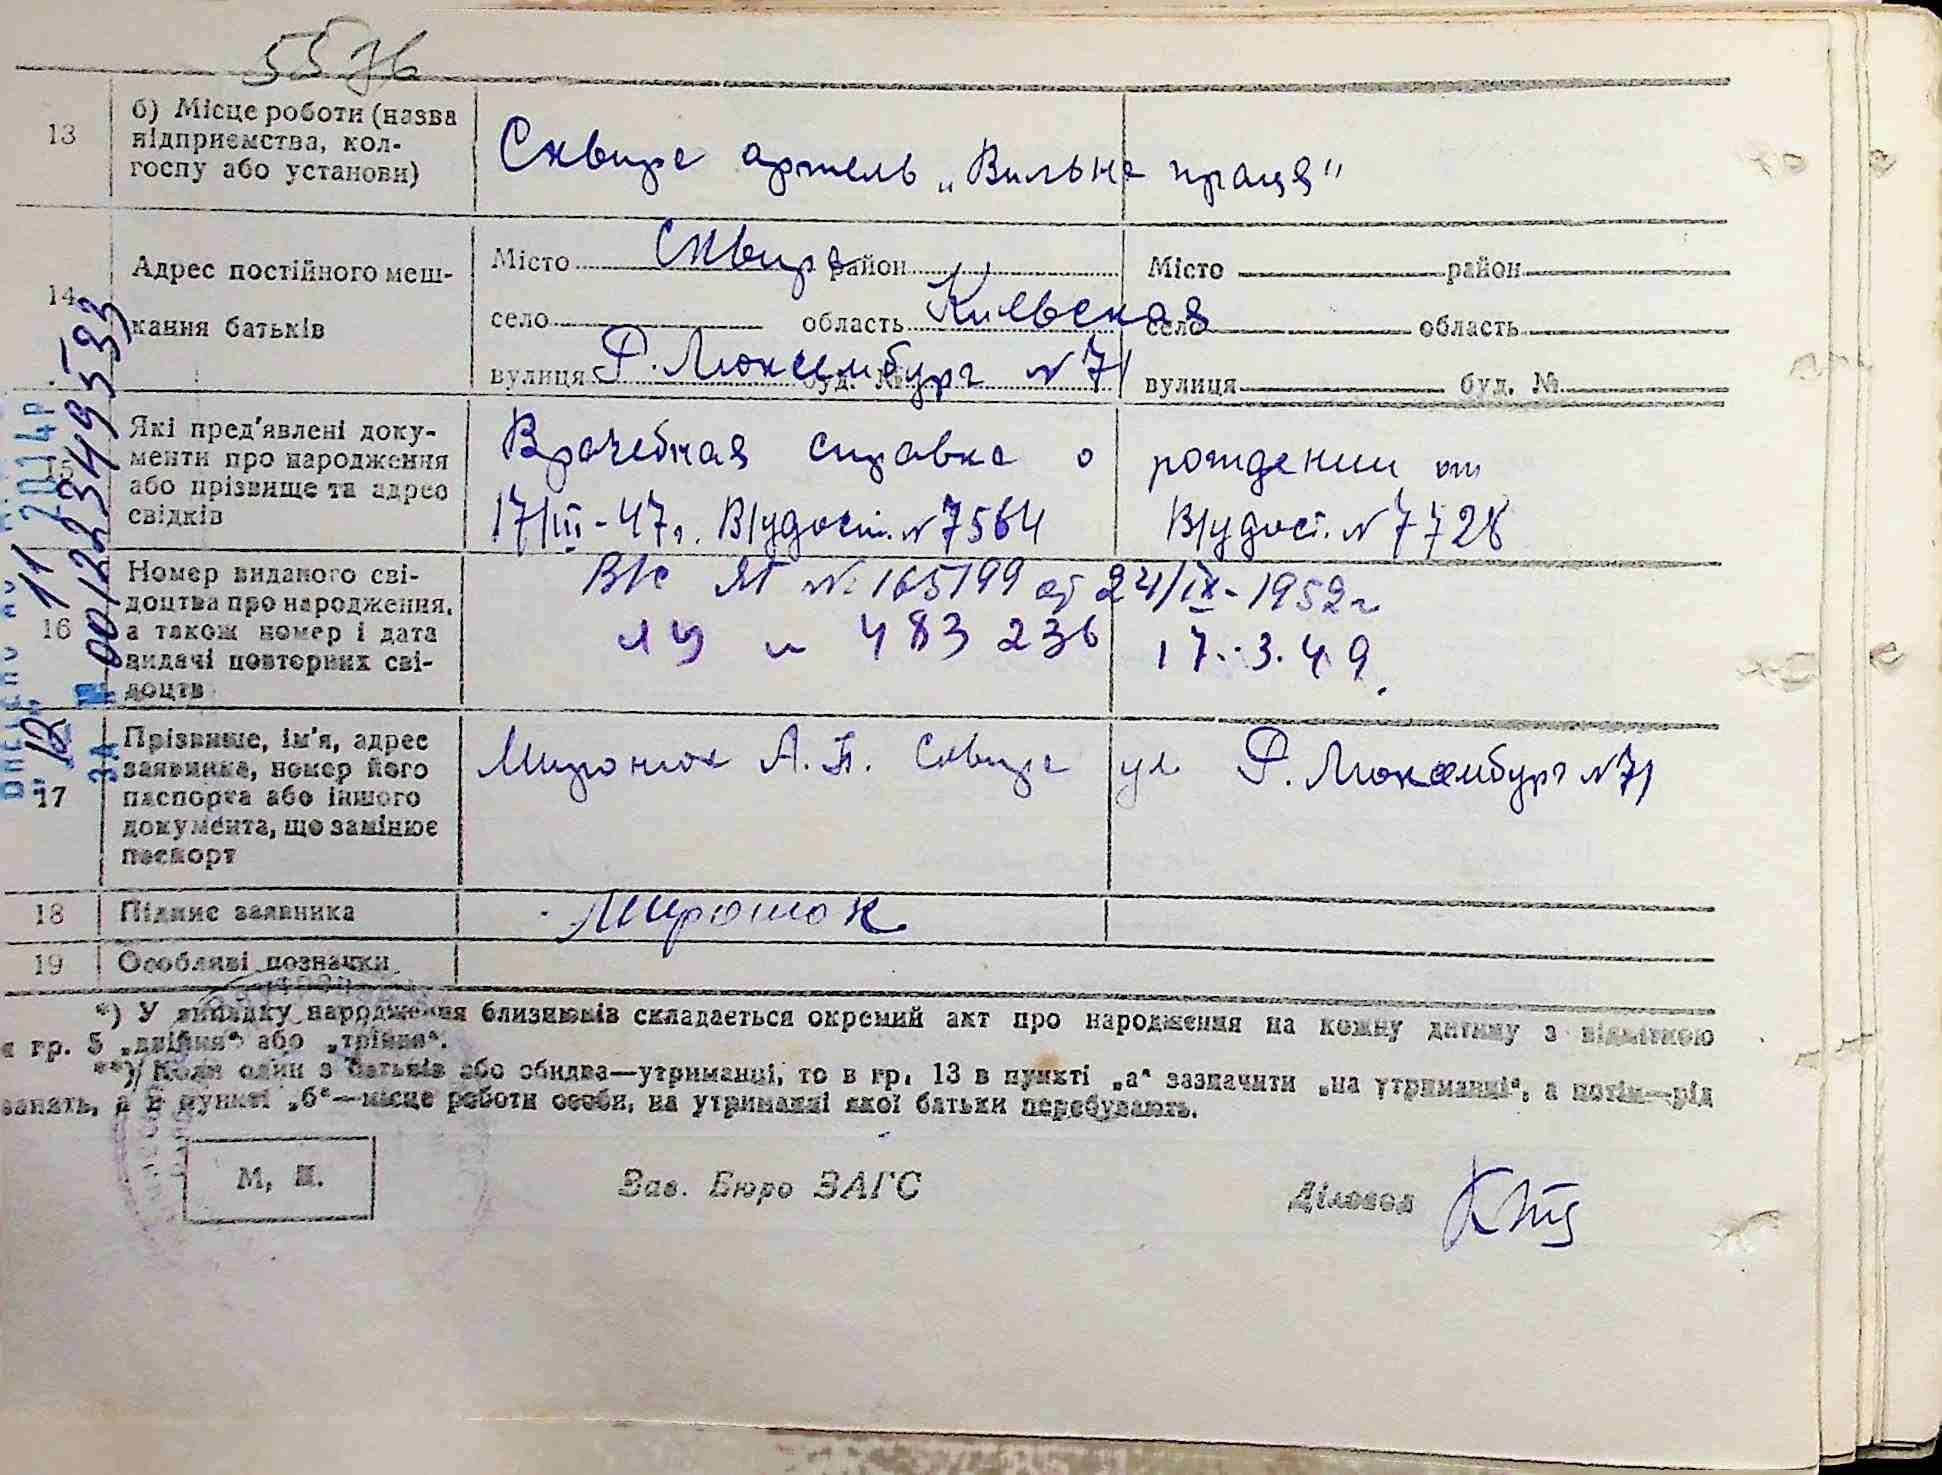 5576
13 б) Місце роботи (назва підприємства, кол-
госпу або установи)
Сквира артель „Вильна праця"
14 Адрес постійного меш-
кання батьків
Місто Сквира район
село область Киевская
вулиця Р. Люксембург буд. № N 71
Місто район
село область
вулиця буд. №
15 Які пред'явлені доку-
менти про народження
або прізвище та адрес
свідків
Врачебная справка о рождении от
17/III-47г. В/удост. N 7564 В/удост. N 7728
16 Номер виданого сві-
доцтва про народження,
а також номер і дата
видачі повторних сві-
доцтв
№ 165199 от 24/IX-1952г
483236 17.3.49.
17 Прізвище, ім'я, адрес
заявника, номер його
паспорта або іншого
документа, що замінює
паспорт
Миронюк А.П. Сквира ул Р. Люксембург N 71
18 Підпис заявника
Миронюк
19 Особливі позначки
*) У випадку народження близнюків складається окремий акт про народження на кожну дитину з відміткою
в гр. 5 „двійня" або „трійня".
**) Коли один з батьків або обидва—утриманці, то в гр. 13 в пункті „а" зазначити „на утриманні", а потім—рід
занять, а в пункті „б"—місце роботи особи, на утриманні якої батьки перебувають.
М. П.
Зав. Бюро ЗАГС
Діловод
12 11 2014р
ЗА № 00122349533